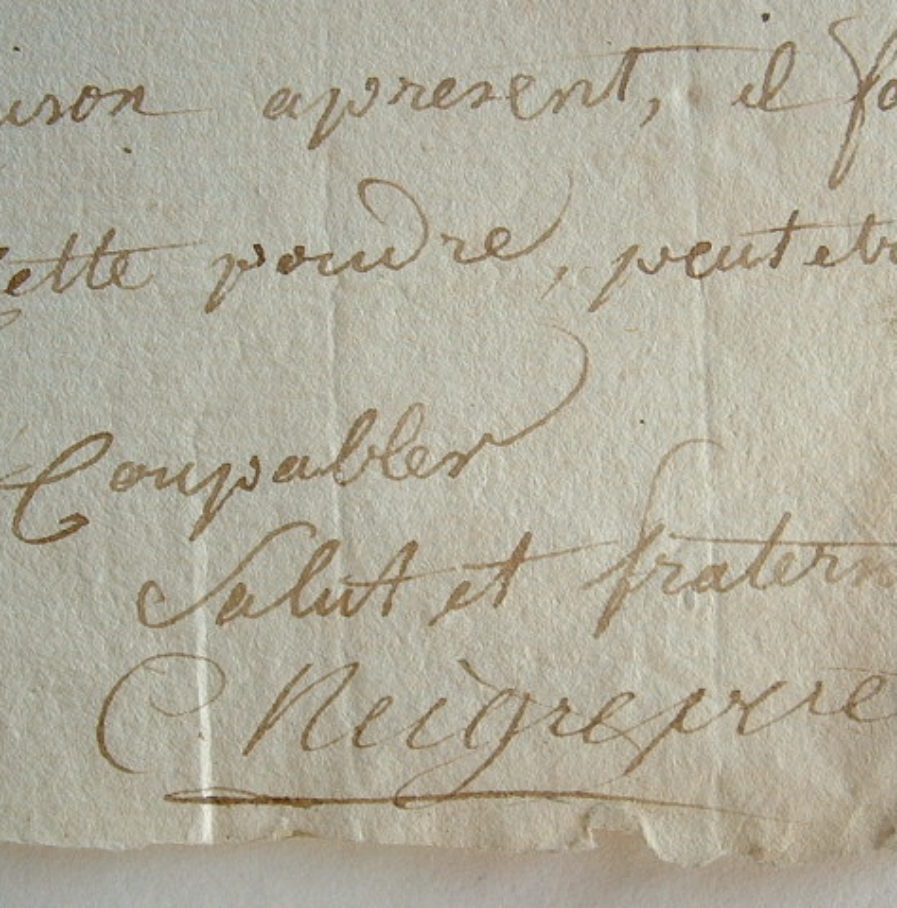 uison apresent, il fa
Cette poudre, peut etr
Coupables
Salut et fratern
Neigrepierre